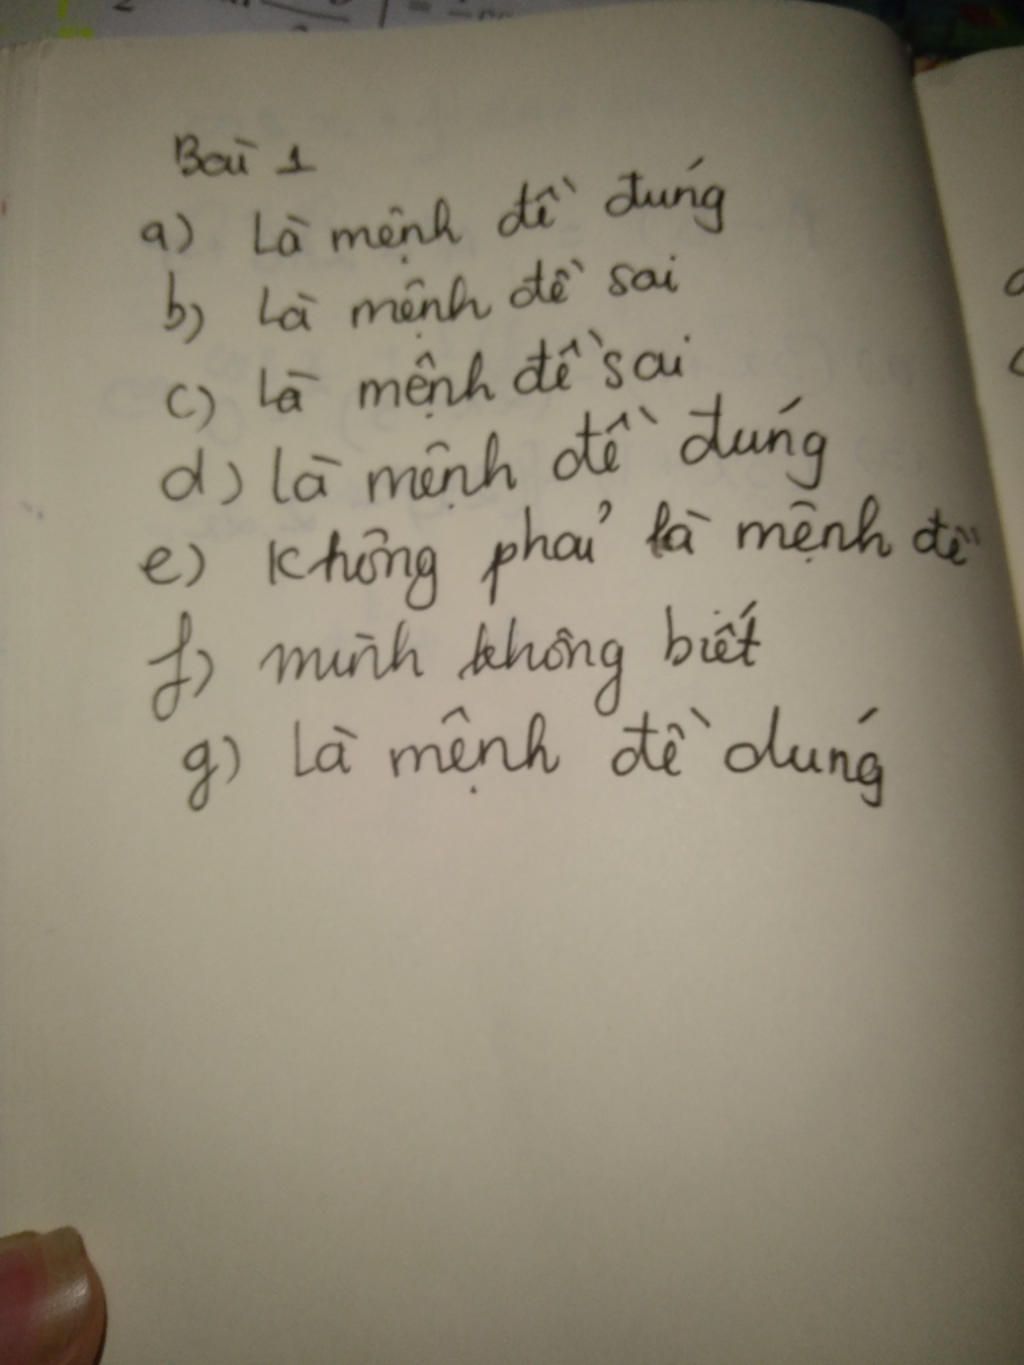 Bài 1
a) Là mệnh đề đúng
b) Là mệnh đề sai
c) Là mệnh đề sai
d) là mệnh đề đúng
e) không phải là mệnh đề
f) mình không biết
g) Là mệnh đề dúng